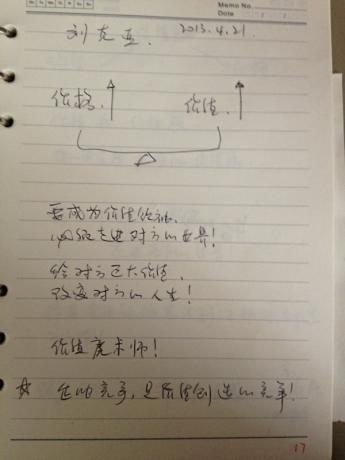 Memo No.
Date
刘克亚. 2013.4.21.
价格. 价值.
要成为价值
走进对方的世界!
给对方巨大价值.
改变对方的人生!
价值魔术师!
☆ 竞争,是价值创造的竞争!
17